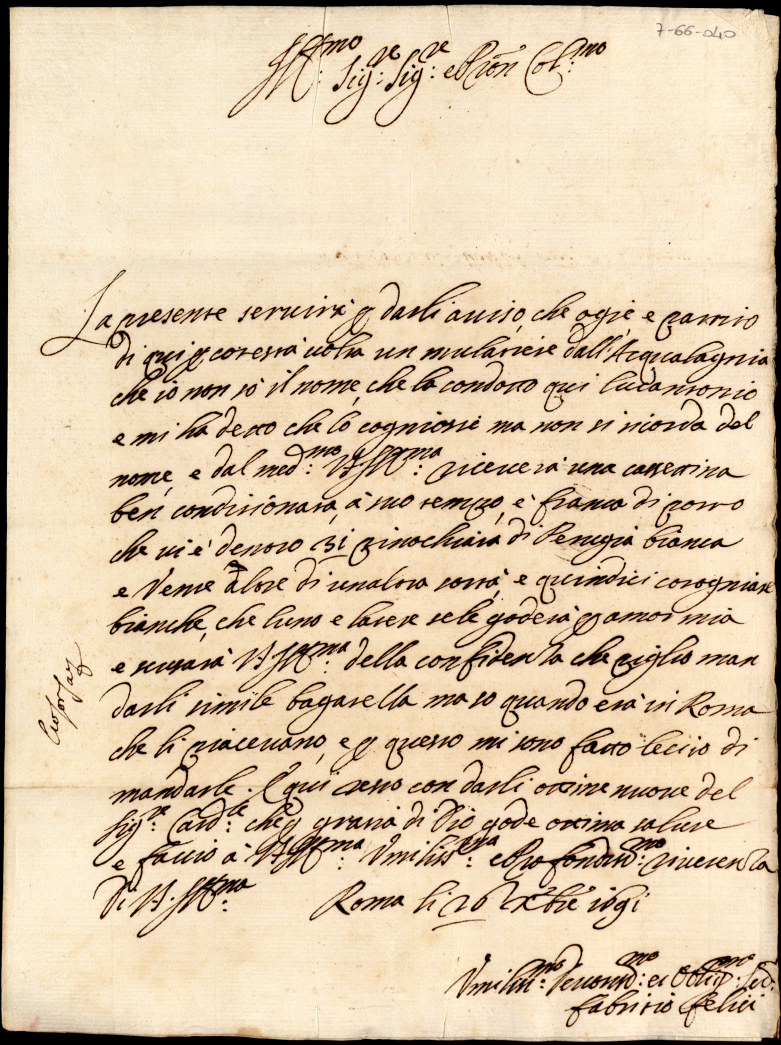 7-66-040
Ill:mo Sig:re Sig:re e Pron Col:mo
La presente servirà p darli aviso che ogie e partito
di qui p cotestà volta un mulatiere dall'Acqualagnia
che io non sò il nome, che la condotto qui Lucantonio
e mi ha detto che lo cogniosie ma non si ricorda del
nome, e dal med:mo V.S.Ill:ma riceverà una cassettina
ben condizionata, à suo tempo, e franca di porto
che vi e' dentro 31 pinochiata di Perugia bianca
e Vente altre di unaltra sorta, e quindici cotogniate
bianche, che luno e latere se le goderà p amor mia
e scusarà V.S.Ill:ma della confitenza che piglio man
darli simile bagatella ma so quando erà in Roma
che li piacevano, e p questo mi sono fatto lecito di
mandarle. E qui resto con darli ottine nuove del
Sig:re Card:le che p gratia di Dio gode ottima salute
e faccio à V.S.Ill:ma Vmiliss:ma e Profondiss:mo riverenza
Di V.S.Ill:ma Roma li 26 Xbre 1691
Vmiliss:mo Devotiss:mo et Oblig:mo Ser:
Fabritio Felici